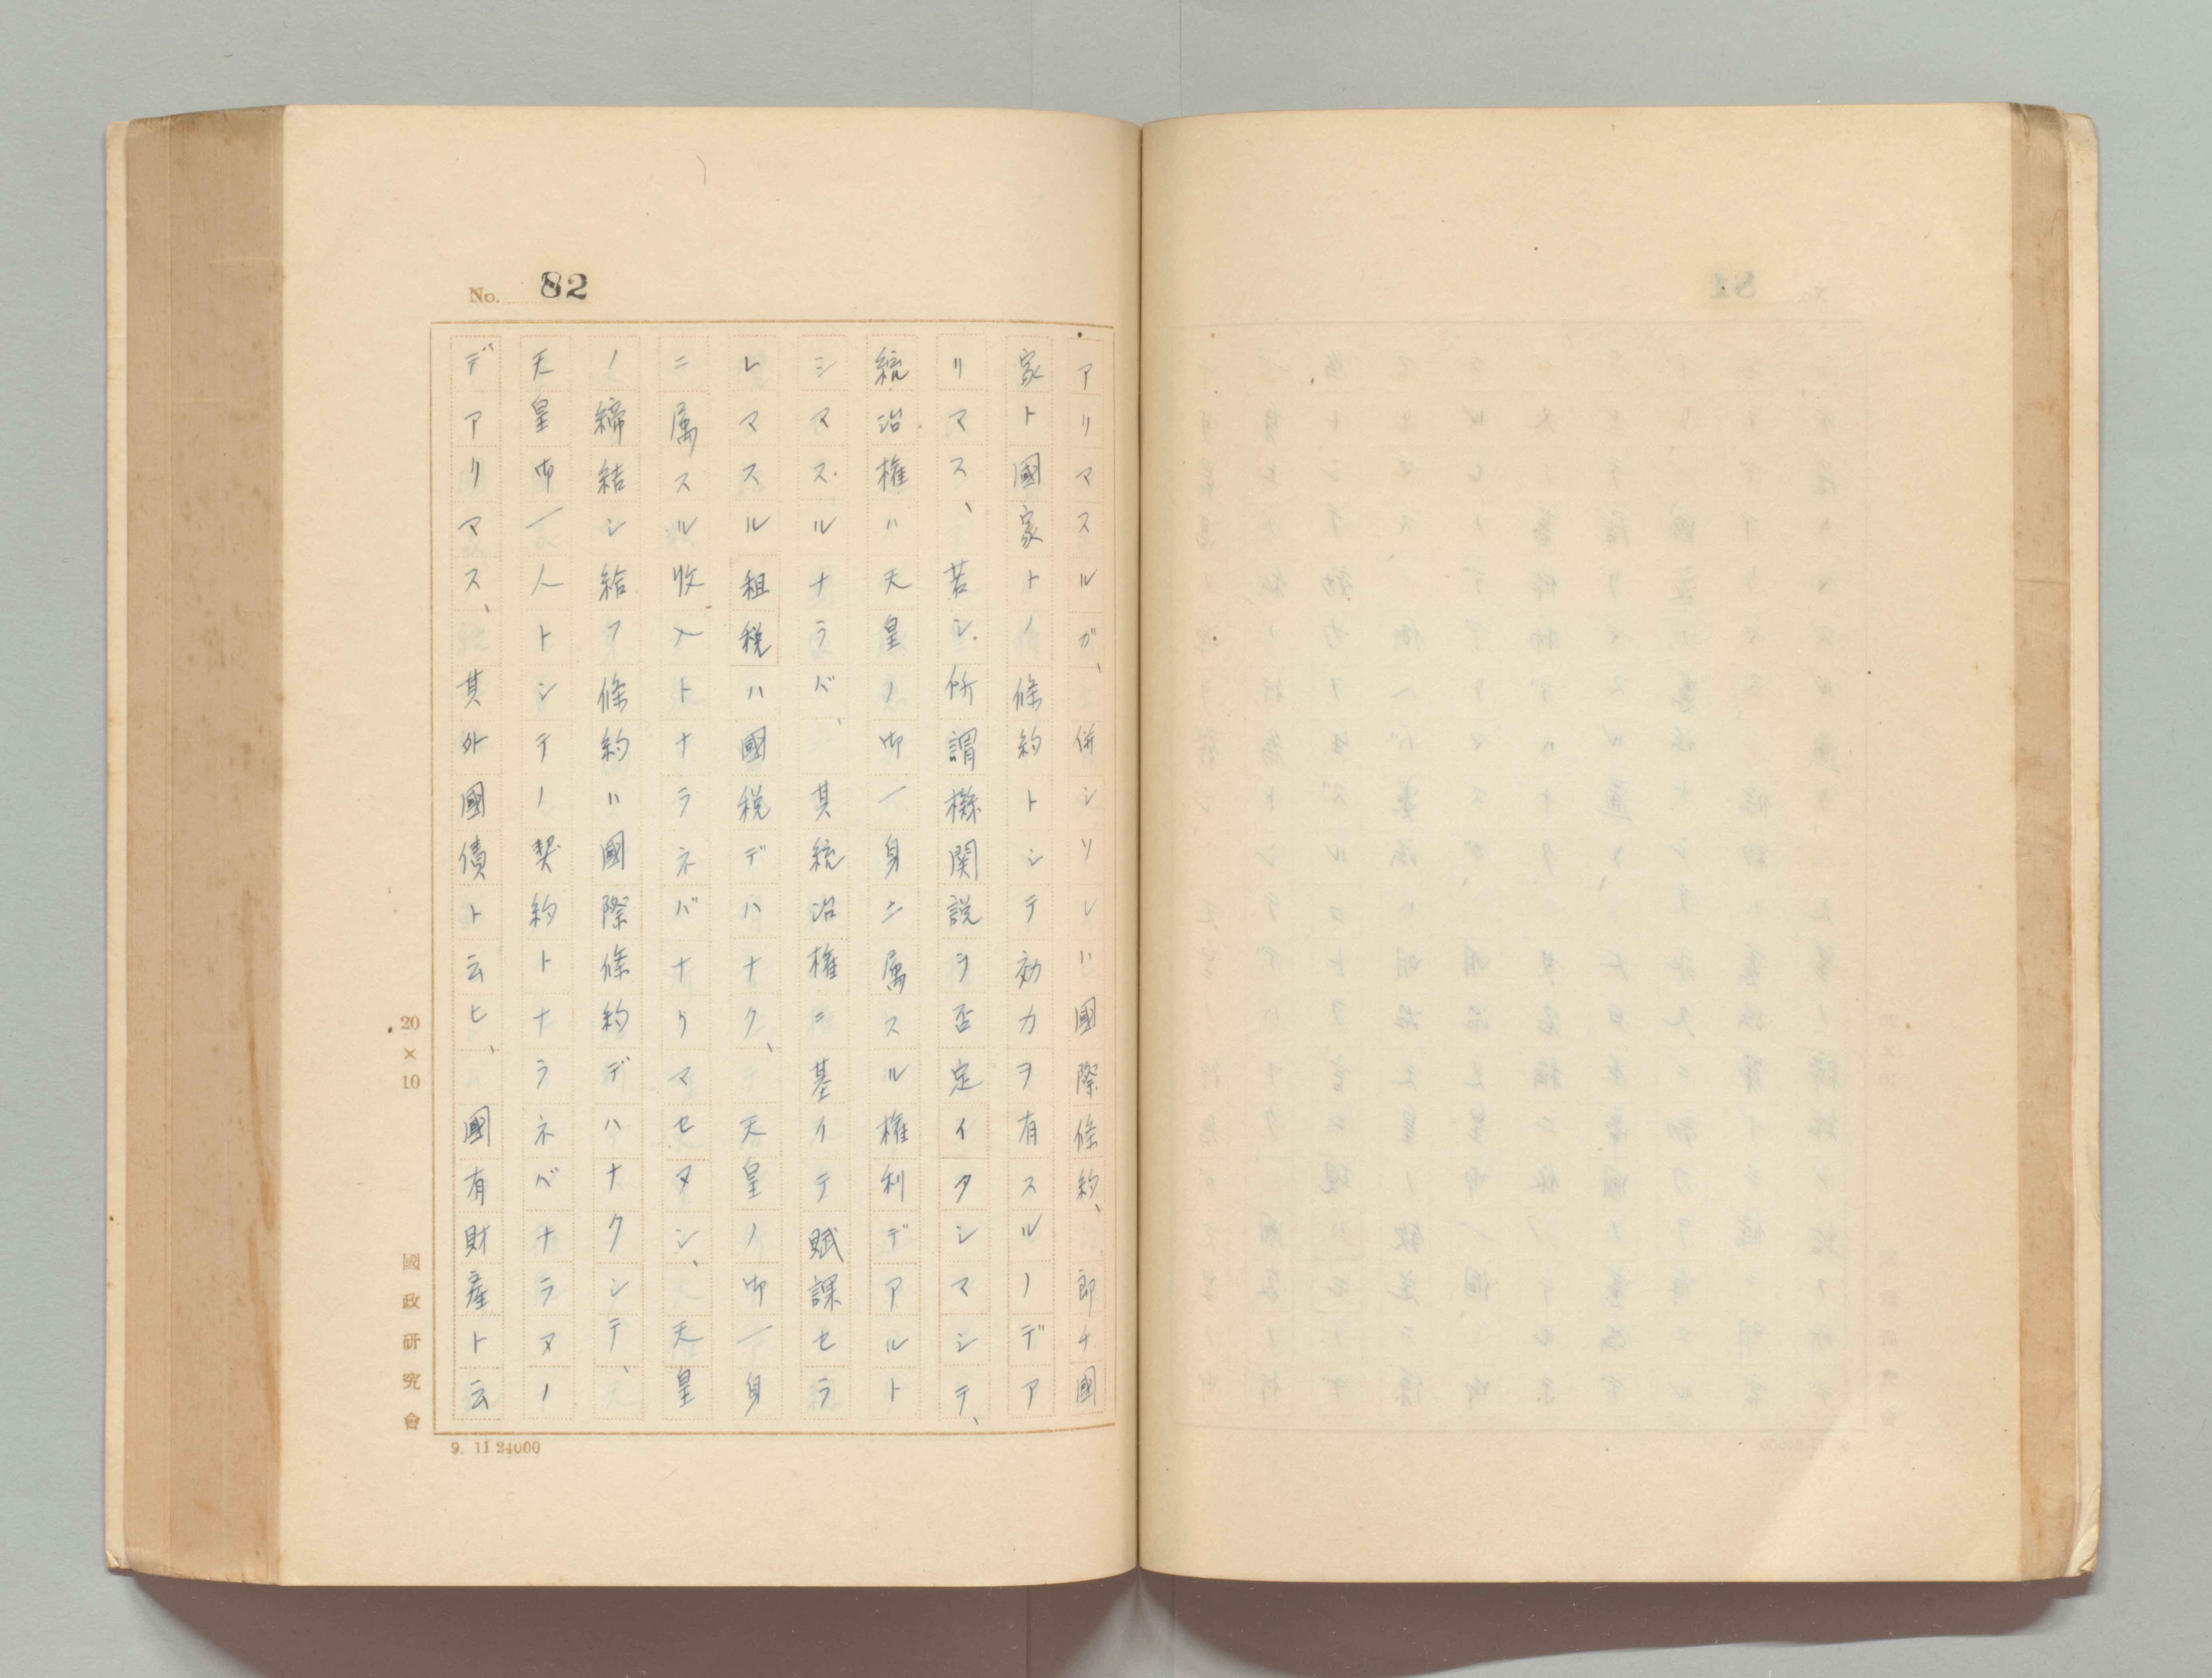 No. 82
アリマスルガ、併シソレハ國際條約、即チ國
家ト國家トノ條約トシテ効力ヲ有スルノデア
リマス、若シ所謂機関説ヲ否定イタシマシテ、
統治権ハ天皇ノ御一身ニ属スル権利デアルト
シマスルナラバ、其統治権ニ基イテ賦課セラ
レマスル租税ハ國税デハナク、天皇ノ御一身
ニ属スル收入トナラネバナリマセヌシ、天皇
ノ締結シ給フ條約ハ國際條約デハナクシテ、
天皇御一人トシテノ契約トナラネバナラヌノ
デアリマス、其外國債ト云ヒ、國有財産ト云
20×10
國政研究會
9. 11 24000